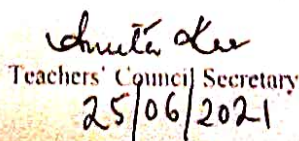 Teachers' Council Secretary
25/06/2021